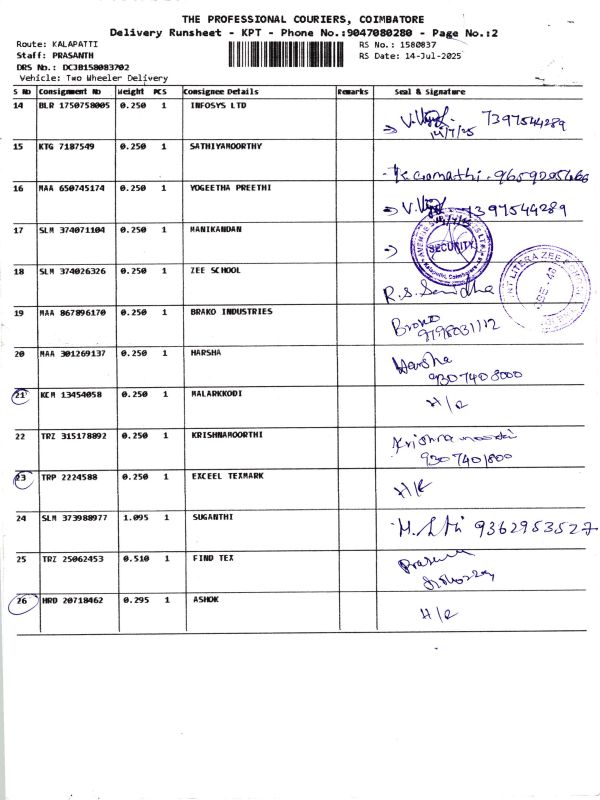 THE PROFESSIONAL COURIERS, COIMBATORE
Delivery Runsheet - KPT - Phone No.:9047080280 - Page No.:2
Route: KALAPATTI RS No.: 1580837
Staff: PRASANTH RS Date: 14-Jul-2025
DRS No.: DCJB158083702
Vehicle: Two Wheeler Delivery
S No Consignment No Weight PCS Consignee Details Remarks Seal & Signature
14 BLR 1750758005 0.250 1 INFOSYS LTD
14/7/25 7397544289
15 KTG 7187549 0.250 1 SATHIYAMOORTHY
16 MAA 650745174 0.250 1 YOGEETHA PREETHI
7397544289
17 SLM 374071104 0.250 1 MANIKANDAN
SECURITY
18 SLM 374026326 0.250 1 ZEE SCHOOL
R.S.
19 MAA 867896170 0.250 1 BRAKO INDUSTRIES
9798031112
20 MAA 301269137 0.250 1 HARSHA
Harsha
9307403000
21 KCM 13454058 0.250 1 MALARKKODI
22 TRZ 315178892 0.250 1 KRISHNAMOORTHI
9307401800
23 TRP 2224588 0.250 1 EXCEEL TEXMARK
24 SLM 373988977 1.095 1 SUGANTHI
9362953527
25 TRZ 25062453 0.510 1 FIND TEX
26 HRD 20718462 0.295 1 ASHOK